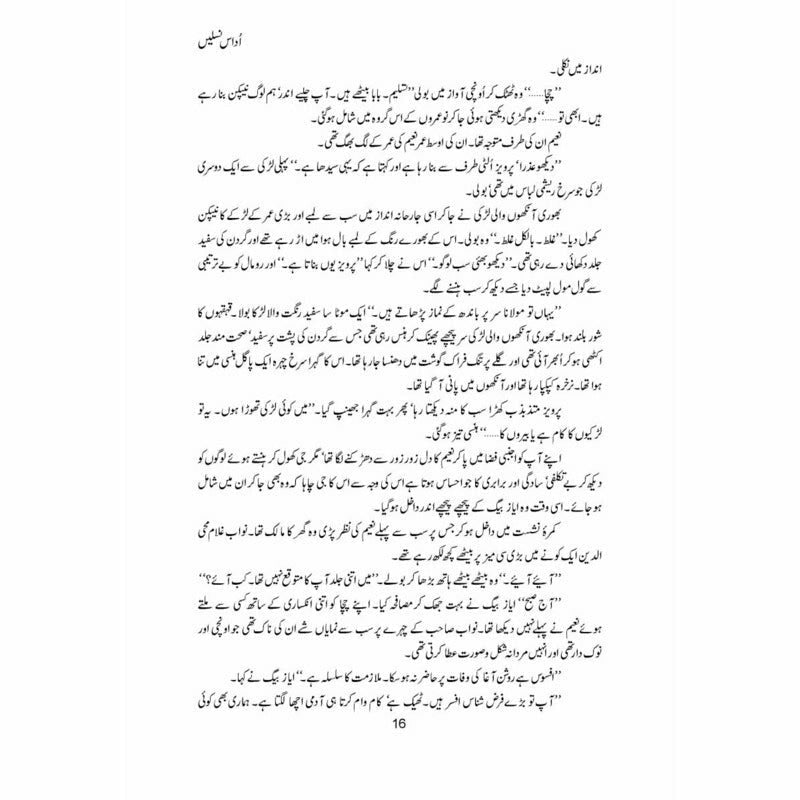 اُداس نسلیں
انداز میں نکلی۔
’’چچا……‘‘ وہ ٹھٹک کر اُونچی آواز میں بولی ’’تسلیم۔ بابا بیٹھے ہیں۔ آپ چلیے اندر‘ ہم لوگ نیپکن بنا رہے
ہیں۔ ابھی تو……‘‘ وہ گھڑی دیکھتی ہوئی جا کر نوعمروں کے اس گروہ میں شامل ہوگئی۔
نعیم ان کی طرف متوجہ تھا۔ ان کی اوسط عمر نعیم کی عمر کے لگ بھگ تھی۔
’’دیکھو عذرا‘ پرویز اُلٹی طرف سے بنا رہا ہے اور کہتا ہے کہ یہی سیدھا ہے۔‘‘ پہلی لڑکی سے ایک دوسری
لڑکی جو سرخ ریشمی لباس میں تھی‘ بولی۔
بھوری آنکھوں والی لڑکی نے جا کر اسی جارحانہ انداز میں سب سے لمبے اور بڑی عمر کے لڑکے کا نیپکن
کھول دیا۔ ’’غلط۔ بالکل غلط۔‘‘ وہ بولی۔ اس کے بھورے رنگ کے لمبے بال ہوا میں اڑ رہے تھے اور گردن کی سفید
جلد دکھائی دے رہی تھی۔ ’’دیکھو بھئی سب لوگو۔‘‘ اس نے چلا کر کہا ’’پرویز یوں بناتا ہے۔‘‘ اور رومال کو بے ترتیبی
سے گول مول لپیٹ دیا جسے دیکھ کر سب ہنسنے لگے۔
’’یہاں تو مولانا سر پر باندھ کے نماز پڑھاتے ہیں۔‘‘ ایک موٹا سا سفید رنگت والا لڑکا بولا۔ قہقہوں کا
شور بلند ہوا۔ بھوری آنکھوں والی لڑکی سر پیچھے پھینک کر ہنس رہی تھی جس سے گردن کی پشت پر سفید‘ صحت مند جلد
اکٹھی ہو کر اُبھر آئی تھی اور گلے پر تنگ فراک گوشت میں دھنسا جا رہا تھا۔ اس کا گہرا سرخ چہرہ ایک پاگل ہنسی میں تنا
ہوا تھا۔ نرخرہ کپکپا رہا تھا اور آنکھوں میں پانی آ گیا تھا۔
پرویز متذبذب کھڑا سب کا منہ دیکھتا رہا‘ پھر بہت گہرا جھینپ گیا۔ ’’میں کوئی لڑکی تھوڑا ہوں۔ یہ تو
لڑکیوں کا کام ہے یا بیروں کا……‘‘ ہنسی تیز ہوگئی۔
اپنے آپ کو اجنبی فضا میں پا کر نعیم کا دل زور زور سے دھڑکنے لگا تھا‘ مگر جی کھول کر ہنستے ہوئے لوگوں کو
دیکھ کر بے تکلفی‘ سادگی اور برابری کا جو احساس ہوتا ہے اس کی وجہ سے اس کا جی چاہا کہ وہ بھی جا کر ان میں شامل
ہو جائے۔ اسی وقت وہ ایاز بیگ کے پیچھے پیچھے اندر داخل ہوگیا۔
کمرۂ نشست میں داخل ہو کر جس پر سب سے پہلے نعیم کی نظر پڑی وہ گھر کا مالک تھا۔ نواب غلام محی
الدین ایک کونے میں بڑی سی میز پر بیٹھے کچھ لکھ رہے تھے۔
’’آیئے آیئے۔‘‘ وہ بیٹھے بیٹھے ہاتھ بڑھا کر بولے۔ ’’میں اتنی جلد آپ کا متوقع نہیں تھا۔ کب آئے؟‘‘
’’آج صبح‘‘ ایاز بیگ نے بہت جھک کر مصافحہ کیا۔ اپنے چچا کو اتنی انکساری کے ساتھ کسی سے ملتے
ہوئے نعیم نے پہلے نہیں دیکھا تھا۔ نواب صاحب کے چہرے پر سب سے نمایاں شے ان کی ناک تھی جو اونچی اور
نوک دار تھی اور انہیں مردانہ شکل و صورت عطا کرتی تھی۔
’’افسوس ہے روشن آغا کی وفات پر حاضر نہ ہوسکا۔ ملازمت کا سلسلہ ہے۔‘‘ ایاز بیگ نے کہا۔
’’آپ تو بڑے فرض شناس افسر ہیں۔ ٹھیک ہے‘ کام وام کرتا ہی آدمی اچھا لگتا ہے۔ ہماری بھی کوئی
16